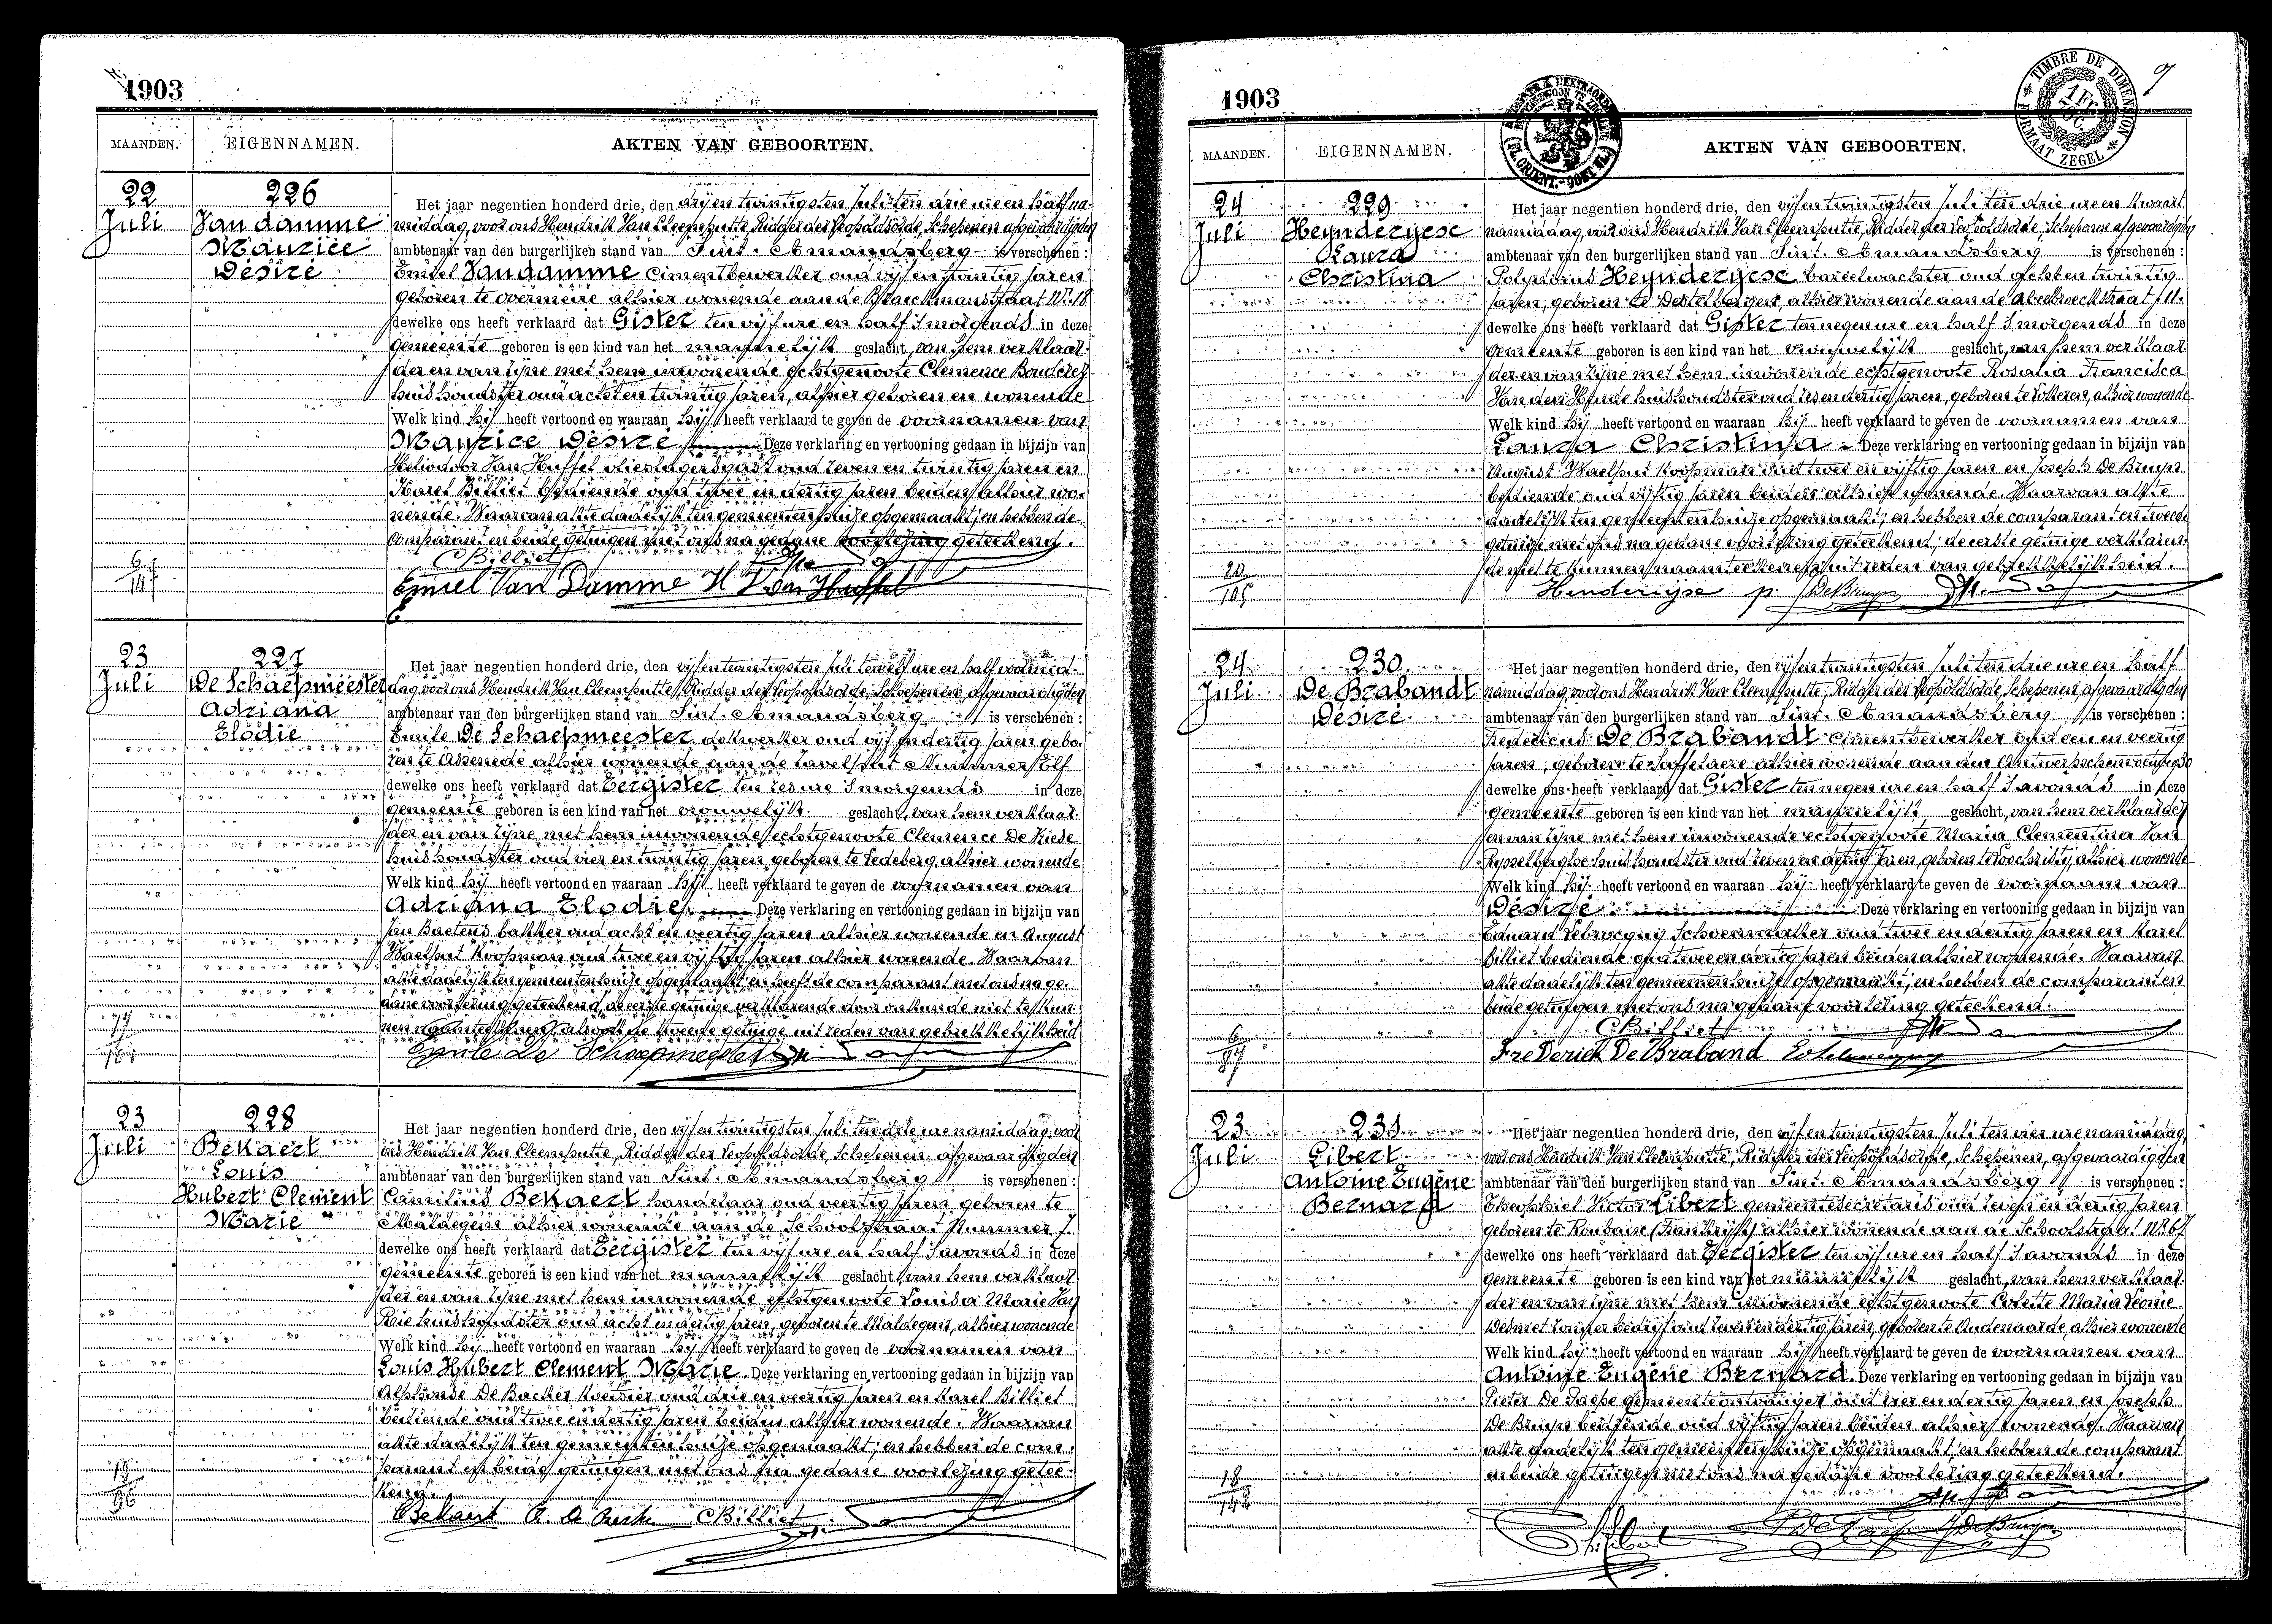 1903
MAANDEN. EIGENNAMEN. AKTEN VAN GEBOORTEN.
22 Juli
226
Van damme
Maurice
Désiré
Het jaar negentien honderd drie, den vijf en twintigsten Juli ten drie ure en half na-
middag, voor ons Hendrik Van Cleemputte, Ridder der Leopoldsorde, Schepenen afgevaardigden
ambtenaar van den burgerlijken stand van Sint-Amandsberg is verschenen:
Emiel Van damme cimentbewerker oud vijf en twintig jaren
geboren te overmeire alhier wonende aan de Braeckmanstraat Nr. 18
dewelke ons heeft verklaard dat Gister ten vijf ure en half 's morgends in deze
gemeente geboren is een kind van het mannelijk geslacht, van hem verklaar-
der en van zijne met hem inwonende echtgenoote Clemence
huishoudster oud acht en twintig jaren, alhier geboren en wonende
Welk kind hij heeft vertoond en waaraan hij heeft verklaard te geven de voornamen van
Maurice Désiré Deze verklaring en vertooning gedaan in bijzijn van
Heliodoor Van Huffel oud zeven en twintig jaren en
Karel Billiet bediende oud twee en dertig jaren beiden alhier wo-
nende. Waarvan akte dadelijk ten gemeentenhuize opgemaakt; en hebben de
comparant en beide getuigen met ons na gedane voorlezing geteekend.
CBilliet
Emiel Van Damme H Van Huffel
6/147
23 Juli
227
De Schaepmeester
Adriana
Elodie
Het jaar negentien honderd drie, den vijf en twintigsten Juli ten elf ure en half voormid-
dag, voor ons Hendrik Van Cleemputte, Ridder der Leopoldsorde, Schepenen afgevaardigden
ambtenaar van den burgerlijken stand van Sint-Amandsberg is verschenen:
Emile De Schaepmeester dokwerker oud vijf en dertig jaren gebo-
ren te Assenede alhier wonende aan de Nummer Elf
dewelke ons heeft verklaard dat Eergister ten zes ure 's morgends in deze
gemeente geboren is een kind van het vrouwelijk geslacht, van hem verklaar-
der en van zijne met hem inwonende echtgenoote Clemence De
huishoudster oud vier en twintig jaren geboren te Ledeberg, alhier wonende
Welk kind hij heeft vertoond en waaraan hij heeft verklaard te geven de voornamen van
Adriana Elodie. Deze verklaring en vertooning gedaan in bijzijn van
Jan Baetens bakker oud acht en veertig jaren alhier wonende en August
Waelput Koopman oud twee en vijftig jaren alhier wonende. Waarvan
akte dadelijk ten gemeentenhuize opgemaakt; en heeft de comparant met ons na ge-
dane voorlezing geteekend, de eerste getuige verklarende door onkunde niet te kun-
nen naamteekenen, alsook de tweede getuige uit reden van gebrekkelijkheid
Emile De Schaepmeester
23 Juli
228
Bekaert
Louis
Hubert Clement
Marie
Het jaar negentien honderd drie, den vijf en twintigsten Juli ten drie ure namiddag, voor
ons Hendrik Van Cleemputte, Ridder der Leopoldsorde, Schepenen afgevaardigden
ambtenaar van den burgerlijken stand van Sint-Amandsberg is verschenen:
Camilius Bekaert handelaar oud veertig jaren geboren te
Maldegem alhier wonende aan de Schoolstraat Nummer 7.
dewelke ons heeft verklaard dat Eergister ten vijf ure en half 's avonds in deze
gemeente geboren is een kind van het mannelijk geslacht van hem verklaar-
der en van zijne met hem inwonende echtgenoote Louisa Marie Van
Rie huishoudster oud acht en dertig jaren, geboren te Maldegem, alhier wonende
Welk kind hij heeft vertoond en waaraan hij heeft verklaard te geven de voornamen van
Louis Hubert Clement Marie. Deze verklaring en vertooning gedaan in bijzijn van
Alphonse De Backer oud drie en veertig jaren en Karel Billiet
bediende oud twee en dertig jaren beiden alhier wonende. Waarvan
akte dadelijk ten gemeentenhuize opgemaakt; en hebben de com-
parant en beide getuigen met ons na gedane voorlezing getee-
kend.
CBekaert CBilliet
1903
TIMBRE DE DIMENSION
FORMAAT ZEGEL
MAANDEN. EIGENNAMEN. AKTEN VAN GEBOORTEN.
24 Juli
229
Heynderycx
Laura
Christina
Het jaar negentien honderd drie, den vijf en twintigsten Juli ten drie ure en kwaart
namiddag, voor ons Hendrik Van Cleemputte, Ridder der Leopoldsorde, Schepenen afgevaardigden
ambtenaar van den burgerlijken stand van Sint-Amandsberg is verschenen:
Polydorus Heynderycx bareelwachter oud acht en twintig
jaren, geboren te Destelbergen, alhier wonende aan de
dewelke ons heeft verklaard dat Gister ten negen ure en half 's morgends in deze
gemeente geboren is een kind van het vrouwelijk geslacht, van hem verklaar-
der en van zijne met hem inwonende echtgenoote Rosalia Francisca
Van den Hende huishoudster oud zes en dertig jaren, geboren te Lokeren, alhier wonende
Welk kind hij heeft vertoond en waaraan hij heeft verklaard te geven de voornamen van
Laura Christina - Deze verklaring en vertooning gedaan in bijzijn van
August Waelput Koopman oud twee en vijftig jaren en Joseph De Bruyn
bediende oud vijftig jaren beiden alhier wonende. Waarvan akte
dadelijk ten gemeentenhuize opgemaakt; en hebben de comparant en tweede
getuige met ons na gedane voorlezing geteekend; de eerste getuige verklaren-
de niet te kunnen naamteekenen uit reden van gebrekkelijkheid.
Henderijse p. JDeBruyn
20/105
24 Juli
230
De Brabandt
Désiré
Het jaar negentien honderd drie, den vijf en twintigsten Juli ten drie ure en half
namiddag, voor ons Hendrik Van Cleemputte, Ridder der Leopoldsorde, Schepenen, afgevaardigden
ambtenaar van den burgerlijken stand van Sint-Amandsberg is verschenen:
Fredericus De Brabandt cimentbewerker oud een en veertig
jaren, geboren te Saffelaere alhier wonende aan den Antwerpschensteenweg
dewelke ons heeft verklaard dat Gister ten negen ure en half 's avonds in deze
gemeente geboren is een kind van het mannelijk geslacht, van hem verklaarder
en van zijne met hem inwonende echtgenoote Maria Clementina Van
Rysselberghe huishoudster oud zeven en dertig jaren, geboren te Loochristij, alhier wonende
Welk kind hij heeft vertoond en waaraan hij heeft verklaard te geven de voornaam van
Désiré Deze verklaring en vertooning gedaan in bijzijn van
Eduard Schoenmaker oud twee en dertig jaren en Karel
Billiet bediende oud twee en dertig jaren beiden alhier wonende. Waarvan
akte dadelijk ten gemeentenhuize opgemaakt; en hebben de comparant en
beide getuigen met ons na gedane voorlezing geteekend.
CBilliet
FreDerick De Braband
6/87
23 Juli
231
Libert
Antoine Eugène
Bernard
Het jaar negentien honderd drie, den vijf en twintigsten Juli ten vier ure namiddag,
voor ons Hendrik Van Cleemputte, Ridder der Leopoldsorde, Schepenen, afgevaardigden
ambtenaar van den burgerlijken stand van Sint-Amandsberg is verschenen:
Theophiel Victor Libert gemeentesecretaris oud zeven en dertig jaren
geboren te Roubaix (Frankrijk) alhier wonende aan de Schoolstraat Nr. 67
dewelke ons heeft verklaard dat Eergister ten vijf ure en half 's avonds in deze
gemeente geboren is een kind van het mannelijk geslacht, van hem verklaar-
der en van zijne met hem inwonende echtgenoote Colette Maria Leonie
Desmet zonder bedrijf oud zeven en dertig jaren, geboren te Audenaarde, alhier wonende
Welk kind hij heeft vertoond en waaraan hij heeft verklaard te geven de voornamen van
Antoine Eugène Bernard. Deze verklaring en vertooning gedaan in bijzijn van
Pieter De Paepe gemeenteontvanger oud vier en dertig jaren en Joseph
De Bruyn bediende oud vijftig jaren beiden alhier wonende. Waarvan
akte dadelijk ten gemeentenhuize opgemaakt; en hebben de comparant
en beide getuigen met ons na gedane voorlezing geteekend.
Th. Libert P De Paepe JDeBruyn
18/142